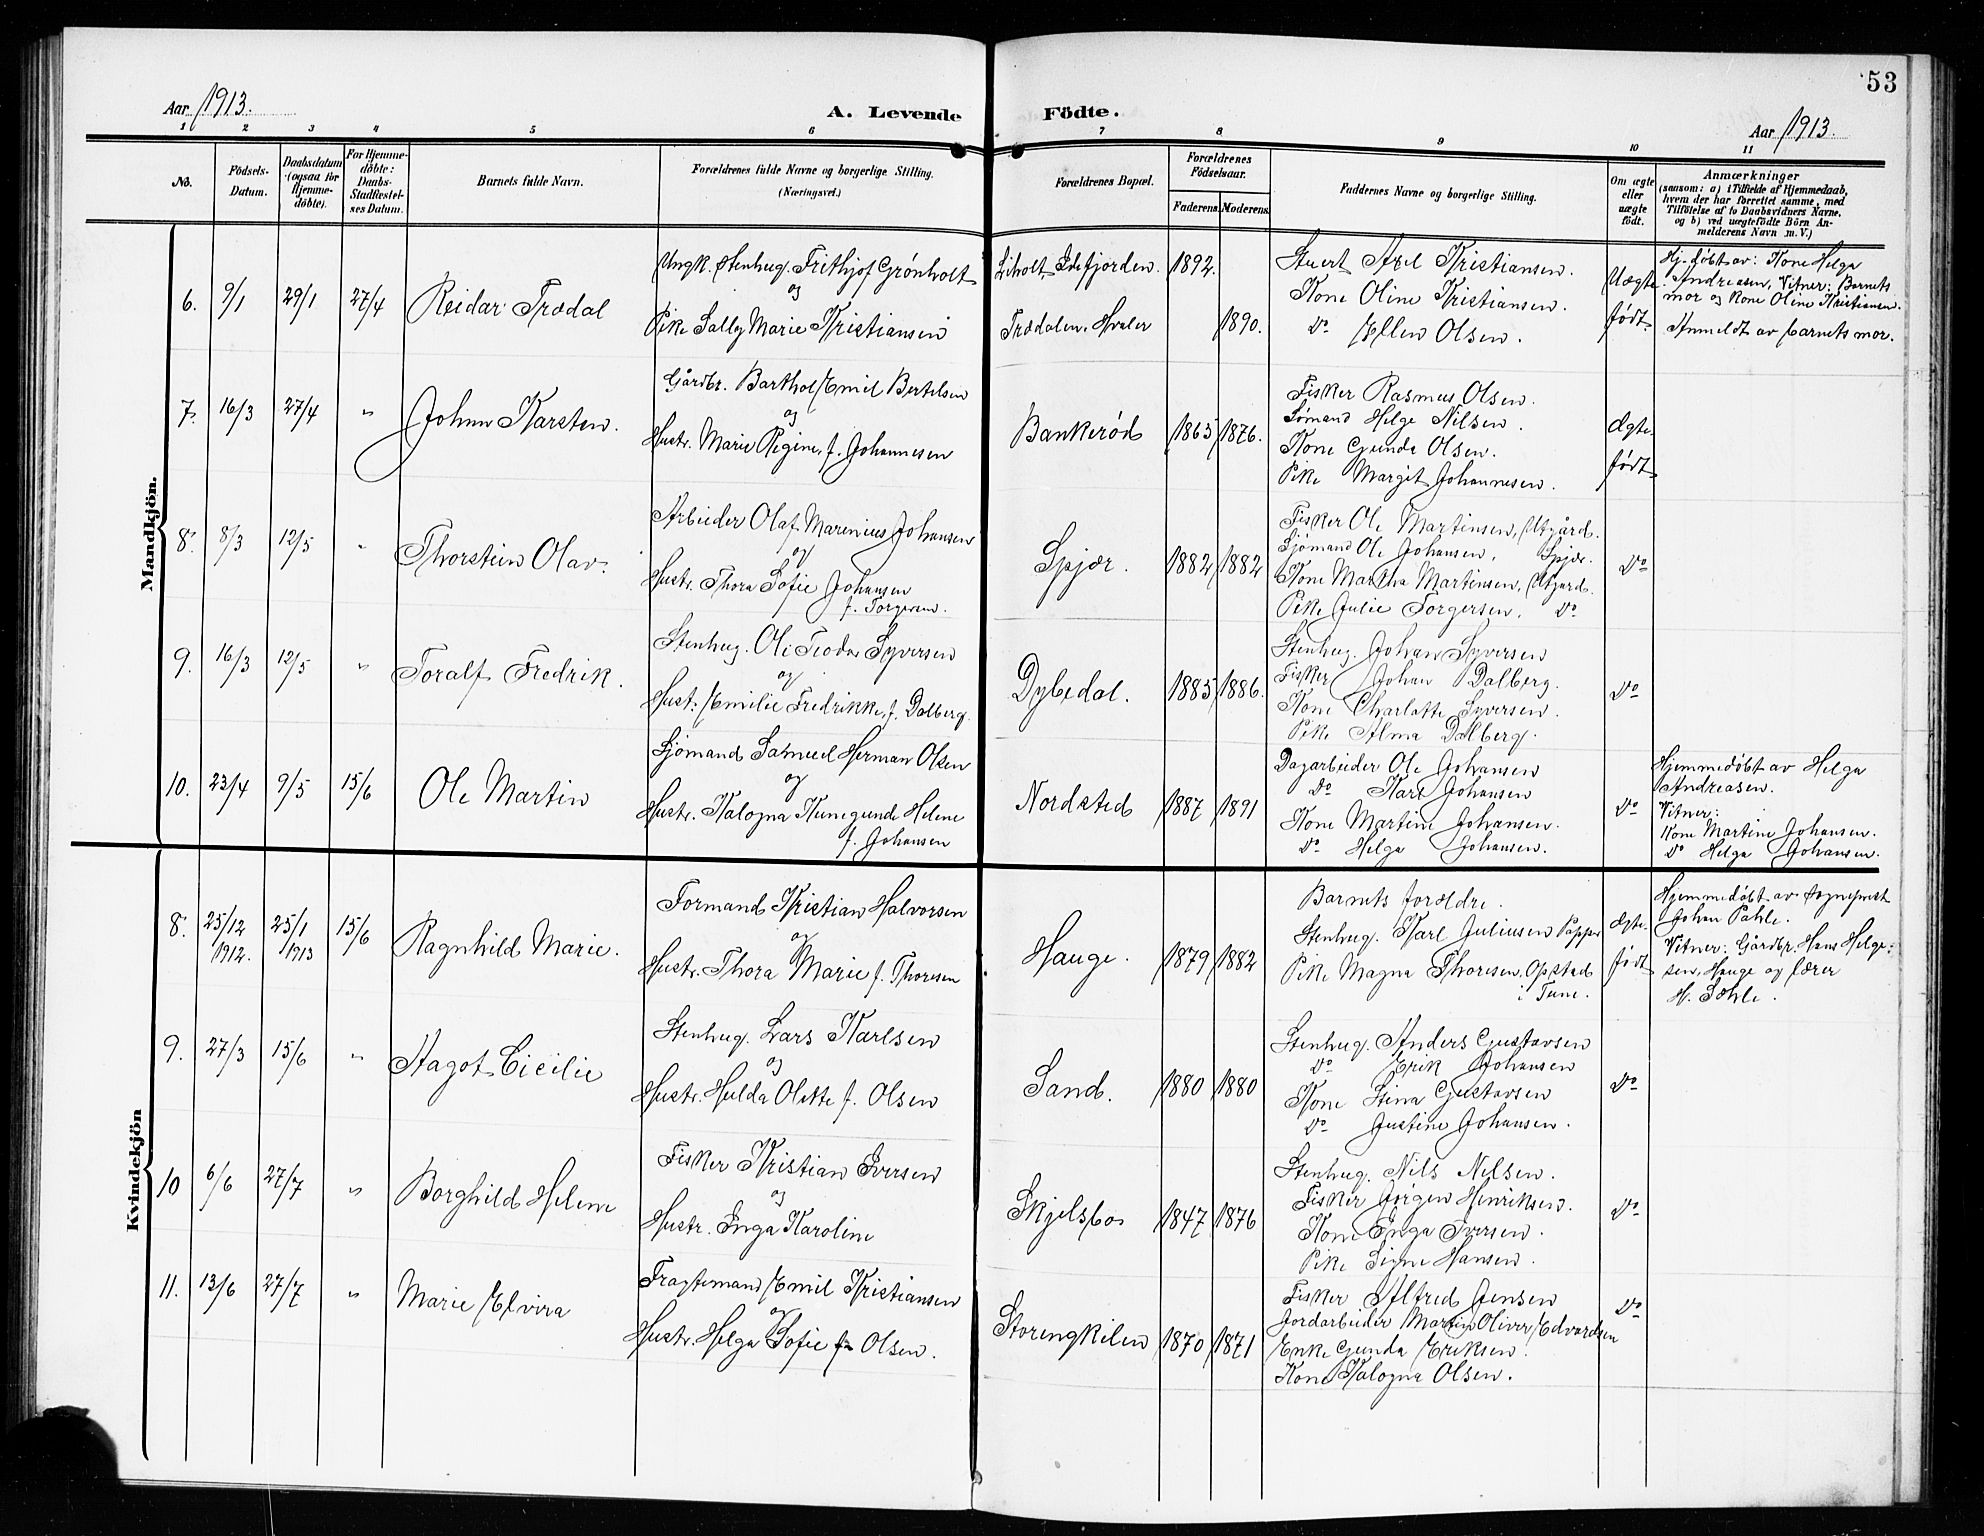 53
Aar 1913.
A. Levende Födte.
Aar 1913.
1 2 3 4 5 6 7 8 9 10 11
No.
Födsels-
Datum.
Daabsdatum
(ogsaa for
Hjemme-
döbte).
For Hjemme-
döbte:
Daabs-
Stadfestel-
ses Datum.
Barnets fulde Navn.
Forældrenes fulde Navne og borgerlige Stilling.
(Næringsvei.)
Forældrenes Bopæl.
Forældrenes
Födselsaar.
Faderens. Moderens.
Faddernes Navne og borgerlige Stilling.
Om ægte
eller
uægte
födt.
Anmærkninger
(saasom: a) i Tilfælde af Hjemmedaab,
hvem der har forrettet samme, med
Tilföielse af to Daabsvidners Navne,
og b) ved uægtefödte Börn An-
melderens Navn m. V.)
Mandkjön.
6. 9/1 29/1 27/4 Reidar Trædal
Ungk. Stenhug. Frithjof Grønholt
og
Pike Sally Marie Kristiansen
Liholt Idefjorden. 1892.
Trædalen. Hvaler 1890.
Stuert Axel Kristiansen.
Kone Oline Kristiansen.
Do Ellen Olsen.
Uægte
født.
Hj. døbt av: Kone Helga
Andreasen, Vitner: Barnets
mor og Kone Oline Kristiansen.
Anmeldt av barnets mor.
7. 16/3 27/4 " Johan Karsten.
Gårdbr. Barthol Emil Bertelsen
og
Hustr. Marie Regine, f. Johannesen
Bankerød 1865 1876.
Fisker Rasmus Olsen.
Sømand Helge Nilsen.
Kone Gunda Olsen.
Pike Margit Johannesen.
Ægte
født
8. 8/3 12/5 " Thorstein Olav.
Arbeider Olaf Marenius Johansen
og
Hustr. Thora Sofie Johansen
f. Torgersen.
Spjær. 1882 1882
Fisker Ole Martinsen, Utgård.
Sjømand Ole Johansen, Spjær.
Kone Martha Martinsen, Utgård.
Pike Julie Torgersen. Do
Do
9. 16/3 12/5 " Toralf Fredrik.
Stenhug. Ole Teodor Syversen
og
Hustr. Emilie Fredrikke, f. Dalberg.
Dybedal. 1885 1886.
Stenhug. Johan Syversen
Fisker Johan Dalberg.
Kone Charlotte Syversen.
Pike Alma Dalberg.
Do
10. 23/4 9/5 15/6 Ole Martin
Sjømand Samuel Herman Olsen
og
Hustr. Kalogna Kunegunde Helene
f. Johansen
Nordsted 1887 1891
Dagarbeider Ole Johansen
Do Karl Johansen
Kone Martine Johansen.
Do Helga Johansen.
Do
Hjemmedøbt av Helga
Andreasen.
Vitner:
Kone Martine Johansen.
Do Helga Johansen.
Kvindekjön
8. 25/12 1912. 25/1 1913 15/6 Ragnhild Marie.
Formand Kristian Halvorsen
og
Hustr. Thora Marie f. Thoresen
Hauge. 1879 1882
Barnets forældre.
Stenhug. Karl Juliusen Papper
Pike Magna Thoresen, Opstad
i Tune.
Ægte
født
Hjemmedøbt av Sogneprest
Johan Pahle.
Vitner: Gårdbr. Hans Helge-
sen, Hauge og lærer
H. Sæhle.
9. 27/3 15/6 " Aagot Cicilie
Stenhug. Lars Karlsen
og
Hustr. Hulda Olette f. Olsen
Sand. 1880 1880
Stenhug. Anders Gustavsen
Do Erik Johansen
Kone Stina Gustavsen
Do Justine Johansen.
Do
10 6/6 27/7 " Borghild Helene
Fisker Kristian Iversen
og
Hustr. Inga Karoline
Skjelsbo 1847 1876
Stenhug. Nils Nilsen.
Fisker Jørgen Henriksen.
Kone Inga Iversen.
Pike Signe Hansen.
Do
11. 13/6 27/7 " Marie Elvira
Fragtemand Emil Kristiansen
og
Hustr. Helga Sofie f. Olsen.
Storengkilen 1870 1871
Fisker Alfred Jensen
Jordarbeider Martin Oliver Edvardsen
Enke Gunda Eriksen.
Kone Kalogna Olsen.
Do